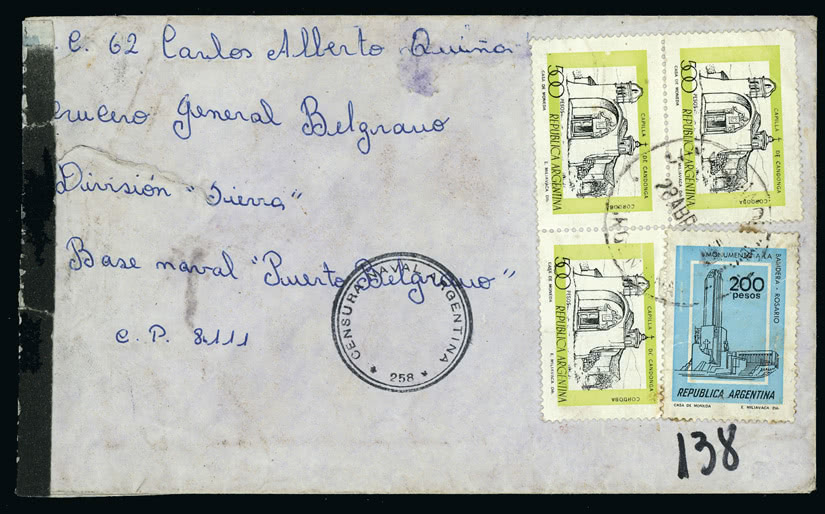 C. 62 Carlos Alberto Quiño
Crucero General Belgrano
División "Sierra"
Base naval "Puerto Belgrano"
C. P. 8111
CENSURA NAVAL ARGENTINA
* 258 *
500
PESOS
CASA DE MONEDA
CAPILLA DE CANDONGA
CORDOBA
REPUBLICA ARGENTINA
E. MILIAVACA DIB.
500
PESOS
CASA DE MONEDA
CAPILLA DE CANDONGA
CORDOBA
REPUBLICA ARGENTINA
E. MILIAVACA DIB.
500
PESOS
CASA DE MONEDA
CAPILLA DE CANDONGA
CORDOBA
REPUBLICA ARGENTINA
E. MILIAVACA DIB.
MONUMENTO A LA
BANDERA - ROSARIO
200
pesos
REPUBLICA ARGENTINA
CASA DE MONEDA
E. MILIAVACA DIB.
138